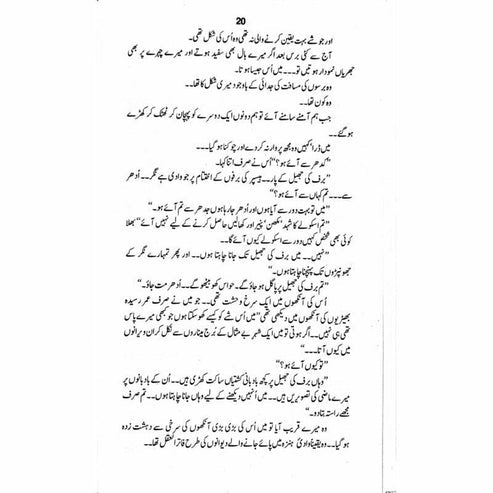 20
اور جو شے بہت یقین کرنے والی نہ تھی وہ اُس کی شکل تھی۔
آج سے کئی برس بعد اگر میرے بال بھی سفید ہوتے اور میرے چہرے پر بھی
جھریاں نمودار ہوتیں تو۔۔۔ میں اُس جیسا ہوتا۔
وہ برسوں کی مسافت کی جدائی کے باوجود میری شکل کا تھا۔۔
وہ کون تھا۔
جب ہم آمنے سامنے آئے تو ہم دونوں ایک دوسرے کو پہچان کر ٹھٹک کر کھڑے
ہو گئے۔۔
میں ڈرا کہیں وہ مجھ پر وار نہ کر دے اور چوکنا ہو گیا۔۔۔
"کدھر سے آئے ہو؟" اُس نے صرف اتنا کہا۔
"برف کی جھیل کے پار۔۔ ہیسپر کی برفوں کے اختتام پر جو وادی ہے نگر۔۔ اُدھر
سے۔۔۔ تم کہاں سے آئے ہو؟"
"میں تو بہت دور سے آیا ہوں اور اُدھر جا رہا ہوں جدھر سے تم آئے ہو۔"
"تم اسکولے کا شہد مکھن پنیر اور کھالیں حاصل کرنے کے لیے نہیں آئے" بھلا
کوئی بھی شخص کہیں دور سے اسکولے کیوں آئے گا۔۔
"نہیں۔۔ میں برف کی جھیل تک جانا چاہتا ہوں۔۔ اور پھر تمہارے نگر کے
جھونپڑوں تک پہنچنا چاہتا ہوں۔"
"تم برف کی جھیل پر پاگل ہو جاؤ گے۔ حواس کھو بیٹھو گے۔۔ اُدھر مت جاؤ۔"
اُس کی آنکھوں میں ایک سرخ وحشت تھی۔۔ جو میں نے صرف عمر رسیدہ
بھیڑیوں کی آنکھوں میں دیکھی تھی "میں اس شے کو کیسے کھو سکتا ہوں جو کبھی میرے پاس
تھی ہی نہیں۔۔ اگر ہوتی تو میں ایک شہر بے مثال کے بُرج میناروں سے نکل کر ان ویرانوں
میں کیوں آتا۔۔۔"
"تو کیوں آئے ہو؟"
"وہاں برف کی جھیل پر کچھ بادبانی کشتیاں ساکت کھڑی ہیں۔۔ اُن کے بادبانوں پر
میرے ماضی کی تصویریں ہیں۔۔ میں انہیں دیکھنے کے لیے وہاں جانا چاہتا ہوں۔۔ تم صرف
مجھے راستہ بتا دو۔"
وہ میرے قریب آیا تو میں اُس کی بڑی بڑی آنکھوں کی سرخی سے دہشت زدہ
ہو گیا۔۔ وہ یقیناً وادیٔ ہنزہ میں پائے جانے والے دیوانوں کی طرح فاتر العقل تھا۔۔